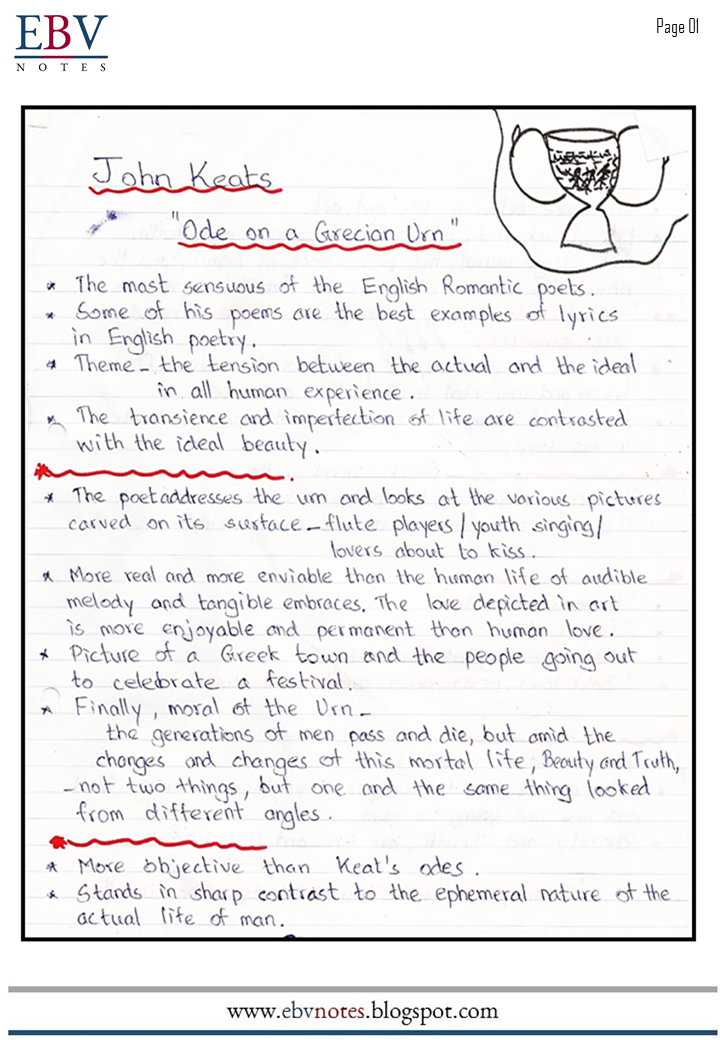 EBV
NOTES
Page 01
John Keats
"Ode on a Grecian Urn"
* The most sensuous of the English Romantic poets.
* Some of his poems are the best examples of lyrics
in English poetry.
* Theme - the tension between the actual and the ideal
in all human experience.
* The transience and imperfection of life are contrasted
with the ideal beauty.
* The poet addresses the urn and looks at the various pictures
carved on its surface - flute players / youth singing /
lovers about to kiss.
* More real and more enviable than the human life of audible
melody and tangible embraces. The love depicted in art
is more enjoyable and permanent than human love.
* Picture of a Greek town and the people going out
to celebrate a festival.
* Finally, moral of the Urn -
the generations of men pass and die, but amid the
changes and changes of this mortal life, Beauty and Truth,
- not two things, but one and the same thing looked
from different angles.
* More objective than Keat's odes.
* Stands in sharp contrast to the ephemeral nature of the
actual life of man.
www.ebvnotes.blogspot.com